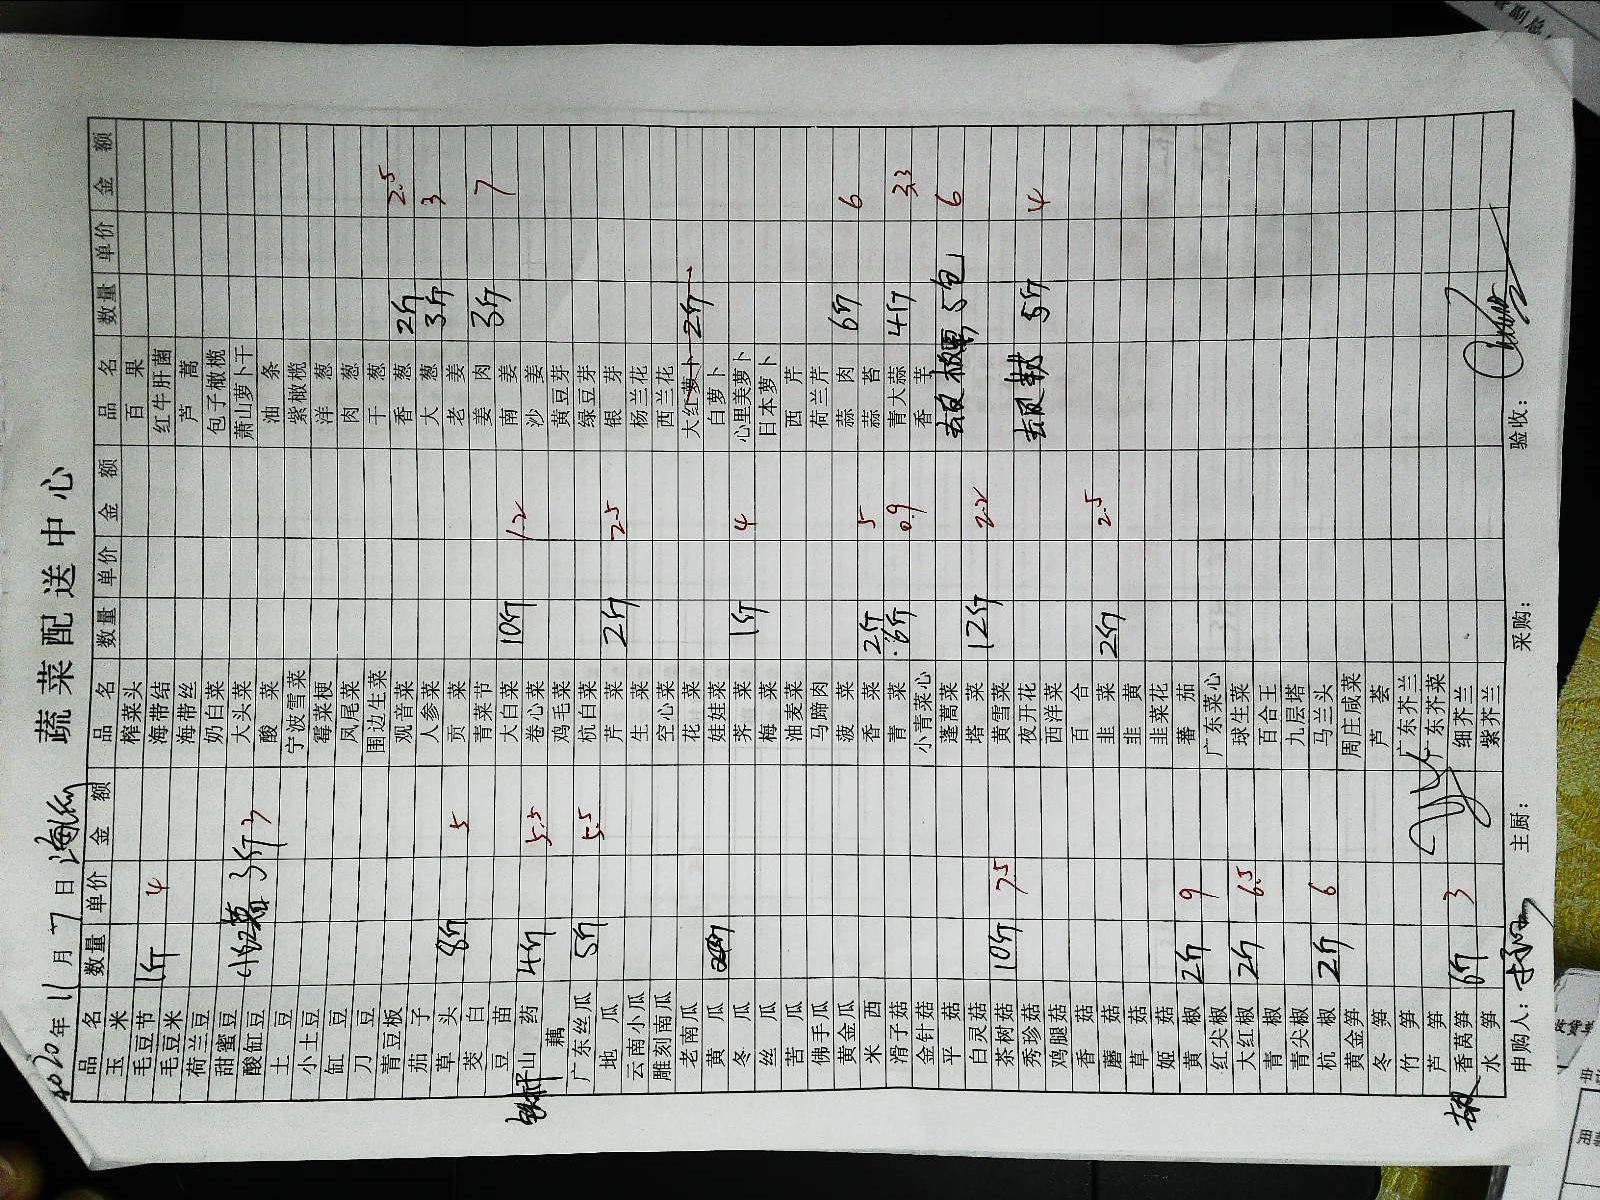 蔬菜配送中心
2020年11月7日
品名 数量 单价 金额 品名 数量 单价 金额 品名 数量 单价 金额
玉米 榨菜头 百果
毛豆节 1斤 4 海带结 红牛肝菌
毛豆米 海带丝 芦蒿
荷兰豆 奶白菜 包子橄榄
甜蜜豆 大头菜 萧山萝卜干
酸缸豆 小红薯 3斤 3 酸菜 油条
土豆 宁波雪菜 紫橄榄
小土豆 霉菜梗 洋葱
缸豆 凤尾菜 肉葱
刀豆 围边生菜 干葱
青豆板 观音菜 香葱 2斤 2.5
茄子 人参菜 大葱 3斤 3
草头 8斤 5 贡菜 老姜
茭白 青菜节 姜肉 3斤 7
豆苗 大白菜 10斤 1.2 南姜
铁杆山药 4斤 5.5 卷心菜 沙姜
藕 鸡毛菜 黄豆芽
广东丝瓜 5斤 5.5 杭白菜 绿豆芽
地瓜 芹菜 2斤 2.5 银芽
云南小瓜 生菜 杨兰花
雕刻南瓜 空心菜 西兰花
老南瓜 花菜 大红萝卜 2斤
黄瓜 娃娃菜 白萝卜
冬瓜 荠菜 1斤 4 心里美萝卜
丝瓜 梅菜 日本萝卜
苦瓜 油麦菜 西芹
佛手瓜 马蹄肉 荷兰芹
黄金瓜 菠菜 蒜肉 6斤 6
米西 香菜 2斤 5 蒜苔
滑子菇 青菜 6斤 0.9 青大蒜 4斤 3.3
金针菇 小青菜心 香芋
平菇 蓬蒿菜 去皮板栗 5包 6
白灵菇 塔菜 12斤 2.2
茶树菇 10斤 7.5 黄雪菜
秀珍菇 夜开花 去皮 5斤 4
鸡腿菇 西洋菜
香菇 百合
蘑菇 韭菜 2斤 2.5
草菇 韭黄
姬菇 韭菜花
黄椒 2斤 9 番茄
红尖椒 广东菜心
大红椒 2斤 6.5 球生菜
青椒 百合王
青尖椒 九层塔
杭椒 2斤 6 马兰头
黄金笋 周庄咸菜
冬笋 芦荟
竹笋 广东芥兰
芦笋 广东芥菜
去皮香莴笋 6斤 3 细芥兰
水笋 紫芥兰
申购人： 主厨： 采购： 验收：